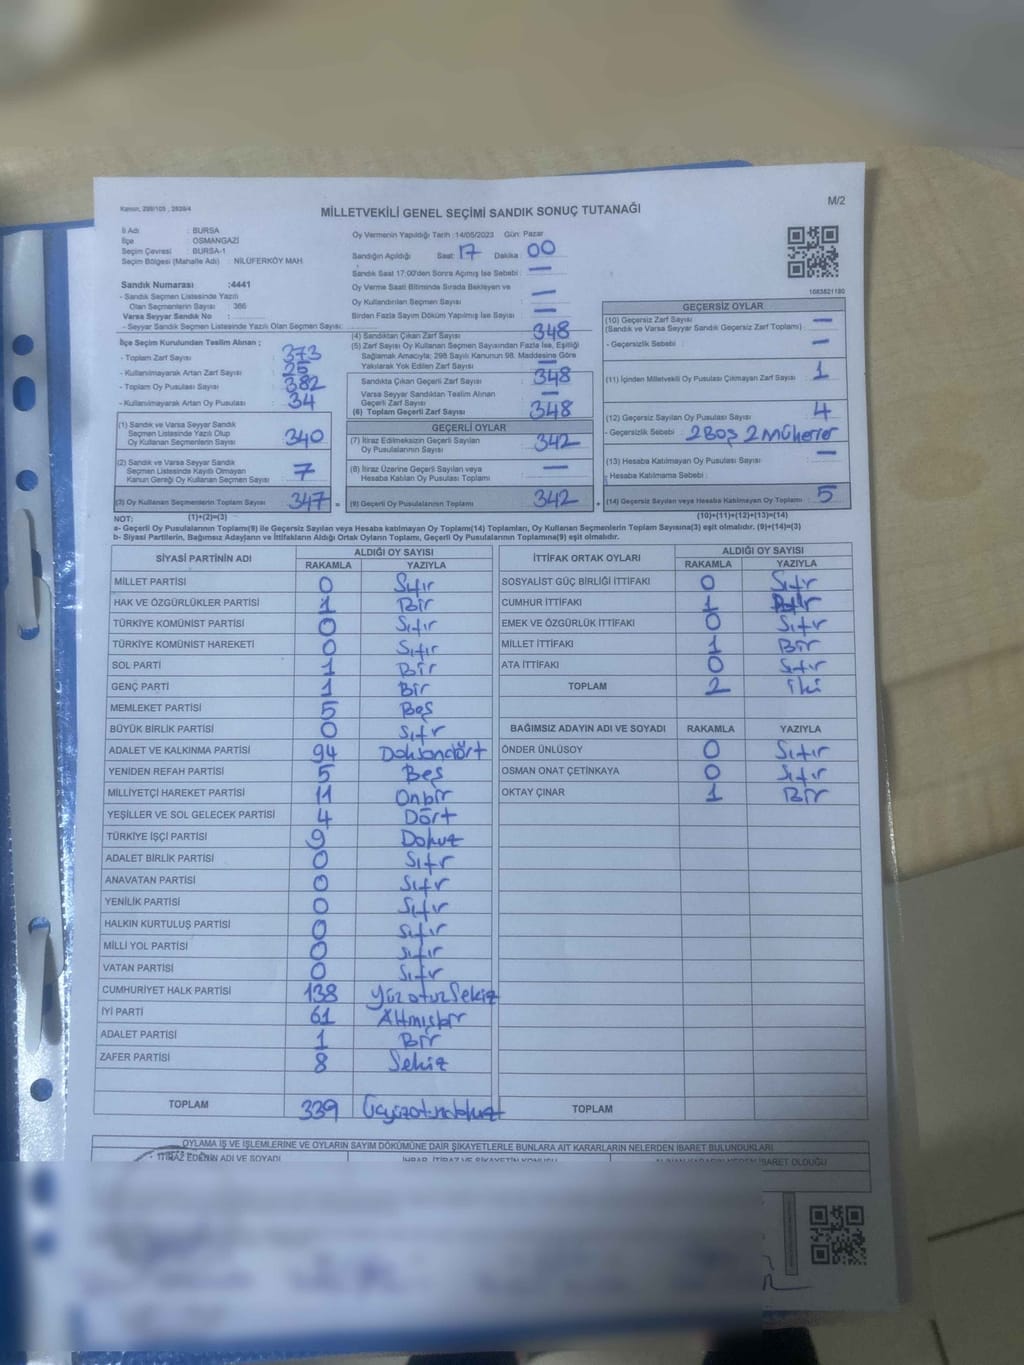 Kanun, 298/105 , 2839/4
MİLLETVEKİLİ GENEL SEÇİMİ SANDIK SONUÇ TUTANAĞI
M/2
İl Adı : BURSA
İlçe : OSMANGAZİ
Seçim Çevresi : BURSA-1
Seçim Bölgesi (Mahalle Adı) : NİLÜFERKÖY MAH.
Sandık Numarası :4441
- Sandık Seçmen Listesinde Yazılı
Olan Seçmenlerin Sayısı : 366
Varsa Seyyar Sandık No :
- Seyyar Sandık Seçmen Listesinde Yazılı Olan Seçmen Sayısı:
İlçe Seçim Kurulundan Teslim Alınan ;
- Toplam Zarf Sayısı : 373
- Kullanılmayarak Artan Zarf Sayısı : 25
- Toplam Oy Pusulası Sayısı : 382
- Kullanılmayarak Artan Oy Pusulası : 34
(1) Sandık ve Varsa Seyyar Sandık
Seçmen Listesinde Yazılı Olup
Oy Kullanan Seçmenlerin Sayısı : 340
(2) Sandık ve Varsa Seyyar Sandık
Seçmen Listesinde Kayıtlı Olmayan
Kanun Gereği Oy Kullanan Seçmen Sayısı : 7
(3) Oy Kullanan Seçmenlerin Toplam Sayısı : 347 =
Oy Vermenin Yapıldığı Tarih :14/05/2023 Gün: Pazar
Sandığın Açıldığı Saat: 17 Dakika : 00
Sandık Saat 17:00'den Sonra Açmış İse Sebebi : —
Oy Verme Saati Bitiminde Sırada Bekleyen ve
Oy Kullandırılan Seçmen Sayısı : —
Birden Fazla Sayım Döküm Yapılmış İse Sayısı : —
(4) Sandıktan Çıkan Zarf Sayısı : 348
(5) Zarf Sayısı Oy Kullanan Seçmen Sayısından Fazla İse, Eşitliği
Sağlamak Amacıyla; 298 Sayılı Kanunun 98. Maddesine Göre
Yakılarak Yok Edilen Zarf Sayısı : —
Sandıkta Çıkan Geçerli Zarf Sayısı : 348
Varsa Seyyar Sandıktan Teslim Alınan
Geçerli Zarf Sayısı : —
(6) Toplam Geçerli Zarf Sayısı : 348
GEÇERLİ OYLAR
(7) İtiraz Edilmeksizin Geçerli Sayılan
Oy Pusulasının Sayısı : 342
(8) İtiraz Üzerine Geçerli Sayılan veya
Hesaba Katılan Oy Pusulası Toplamı : —
(9) Geçerli Oy Pusulalarının Toplamı : 342 +
1083821180
GEÇERSİZ OYLAR
(10) Geçersiz Zarf Sayısı : —
(Sandık ve Varsa Seyyar Sandık Geçersiz Zarf Toplamı)
- Geçersizlik Sebebi : —
(11) İçinden Milletvekili Oy Pusulası Çıkmayan Zarf Sayısı : 1
(12) Geçersiz Sayılan Oy Pusulası Sayısı : 4
- Geçersizlik Sebebi : 2 Boş 2 Mükerrer
(13) Hesaba Katılmayan Oy Pusulası Sayısı : —
- Hesaba Katılmama Sebebi :
(14) Geçersiz Sayılan veya Hesaba Katılmayan Oy Toplamı : 5
NOT: (1)+(2)=(3) (10)+(11)+(12)+(13)=(14)
a- Geçerli Oy Pusulalarının Toplamı(9) ile Geçersiz Sayılan veya Hesaba katılmayan Oy Toplamı(14) Toplamları, Oy Kullanan Seçmenlerin Toplam Sayısına(3) eşit olmalıdır. (9)+(14)=(3)
b- Siyasi Partilerin, Bağımsız Adayların ve İttifakların Aldığı Ortak Oyların Toplamı, Geçerli Oy Pusulalarının Toplamına(9) eşit olmalıdır.
SİYASİ PARTİNİN ADI ALDIĞI OY SAYISI
RAKAMLA YAZIYLA
MİLLET PARTİSİ 0 Sıfır
HAK VE ÖZGÜRLÜKLER PARTİSİ 1 Bir
TÜRKİYE KOMÜNİST PARTİSİ 0 Sıfır
TÜRKİYE KOMÜNİST HAREKETİ 0 Sıfır
SOL PARTİ 1 Bir
GENÇ PARTİ 1 Bir
MEMLEKET PARTİSİ 5 Beş
BÜYÜK BİRLİK PARTİSİ 0 Sıfır
ADALET VE KALKINMA PARTİSİ 94 Doksandört
YENİDEN REFAH PARTİSİ 5 Beş
MİLLİYETÇİ HAREKET PARTİSİ 11 Onbir
YEŞİLLER VE SOL GELECEK PARTİSİ 4 Dört
TÜRKİYE İŞÇİ PARTİSİ 9 Dokuz
ADALET BİRLİK PARTİSİ 0 Sıfır
ANAVATAN PARTİSİ 0 Sıfır
YENİLİK PARTİSİ 0 Sıfır
HALKIN KURTULUŞ PARTİSİ 0 Sıfır
MİLLİ YOL PARTİSİ 0 Sıfır
VATAN PARTİSİ 0 Sıfır
CUMHURİYET HALK PARTİSİ 138 YüzotuzSekiz
İYİ PARTİ 61 Altmışbir
ADALET PARTİSİ 1 Bir
ZAFER PARTİSİ 8 Sekiz
TOPLAM 339 Üçyüzotuzdokuz
İTTİFAK ORTAK OYLARI ALDIĞI OY SAYISI
RAKAMLA YAZIYLA
SOSYALİST GÜÇ BİRLİĞİ İTTİFAKI 0 Sıfır
CUMHUR İTTİFAKI 1 Bir
EMEK VE ÖZGÜRLÜK İTTİFAKI 0 Sıfır
MİLLET İTTİFAKI 1 Bir
ATA İTTİFAKI 0 Sıfır
TOPLAM 2 iki
BAĞIMSIZ ADAYIN ADI VE SOYADI RAKAMLA YAZIYLA
ÖNDER ÜNLÜSOY 0 Sıfır
OSMAN ONAT ÇETİNKAYA 0 Sıfır
OKTAY ÇINAR 1 Bir
TOPLAM
OYLAMA İŞ VE İŞLEMLERİNE VE OYLARIN SAYIM DÖKÜMÜNE DAİR ŞİKAYETLERLE BUNLARA AİT KARARLARIN NELERDEN İBARET BULUNDUKLARI
İTİRAZ EDENİN ADI VE SOYADI
İHBAR, İTİRAZ VE ŞİKAYETİN KONUSU
ALINAN KARARIN NEDEN İBARET OLDUĞU